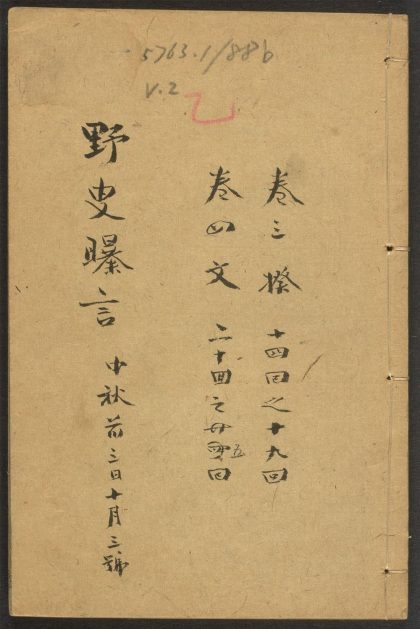 5763.1/88b
v.2
乙
卷三 揆 十四回之十九回
卷四 文 二十回之廿五回
野史曝言 中秋前三日十月三號